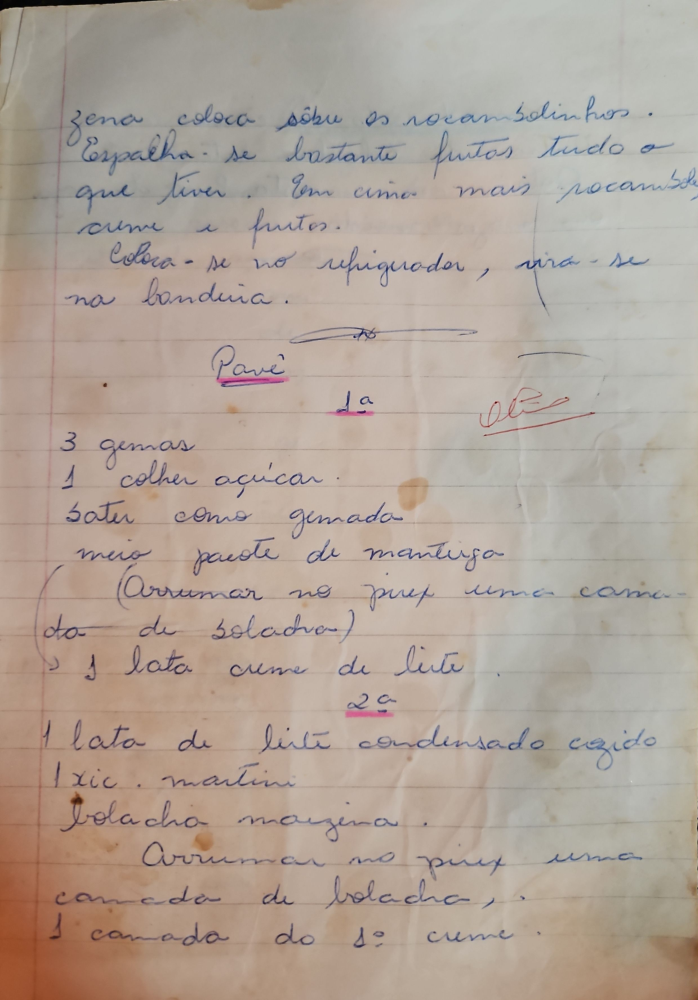 zena coloca sôbre os rocambolinhos.
Espalha-se bastante frutas tudo o
que tiver. Em cima mais rocambole
creme e frutas.
Coloca-se no refigerador, vira-se
na bandeira.
Pavê
1ª
3 gemas
1 colher açúcar.
bater como gemada
meio pacote de manteiga
(Arrumar no pirex uma cama-
da de bolacha)
1 lata creme de leite.
2ª
1 lata de leite condensado cozido
1 xic. martini
bolacha maizena.
Arrumar no pirex uma
camada de bolacha,
1 camada do 1º creme.